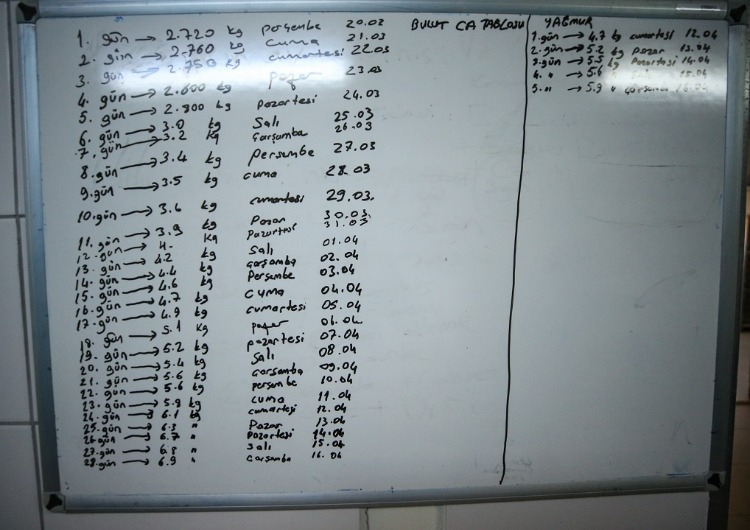 BULUT CA TABLOSU
1. gün → 2.720 kg perşembe 20.03
2. gün → 2.760 kg cuma 21.03
3. gün → 2.750 kg cumartesi 22.03
4. gün → 2.800 kg pazar 23.03
5. gün → 2.900 kg pazartesi 24.03
6. gün → 3.0 kg Salı 25.03
7. gün → 3.2 kg Çarşamba 26.03
8. gün → 3.4 kg perşembe 27.03
9. gün → 3.5 kg cuma 28.03
10. gün → 3.6 kg cumartesi 29.03.
11. gün → 3.9 kg Pazar 30.03.
12. gün → 4. kg Pazartesi 31.03
13. gün → 4.2 kg Salı 01.04
14. gün → 4.4 kg Çarşamba 02.04
15. gün → 4.6 kg Perşembe 03.04
16. gün → 4.7 kg cuma 04.04
17. gün → 4.9 kg cumartesi 05.04
18. gün → 5.1 kg pazar 06.04
19. gün → 5.2 kg pazartesi 07.04
20. gün → 5.4 kg Salı 08.04
21. gün → 5.6 kg Çarşamba 09.04
22. gün → 5.6 kg perşembe 10.04
23. gün → 5.9 kg cuma 11.04
24. gün → 6.1 kg cumartesi 12.04
25. gün → 6.3 " Pazar 13.04
26. gün → 6.7 " Pazartesi 14.04
27. gün → 6.8 " Salı 15.04
28. gün → 6.9 " Çarşamba 16.04
YAĞMUR
1. gün → 4.7 kg cumartesi 12.04
2. gün → 5.2 kg pazar 13.04
3. gün → 5.5 kg Pazartesi 14.04
4. " → 5.6 15.04
5. " → 5.9 " Çarşamba 16.04